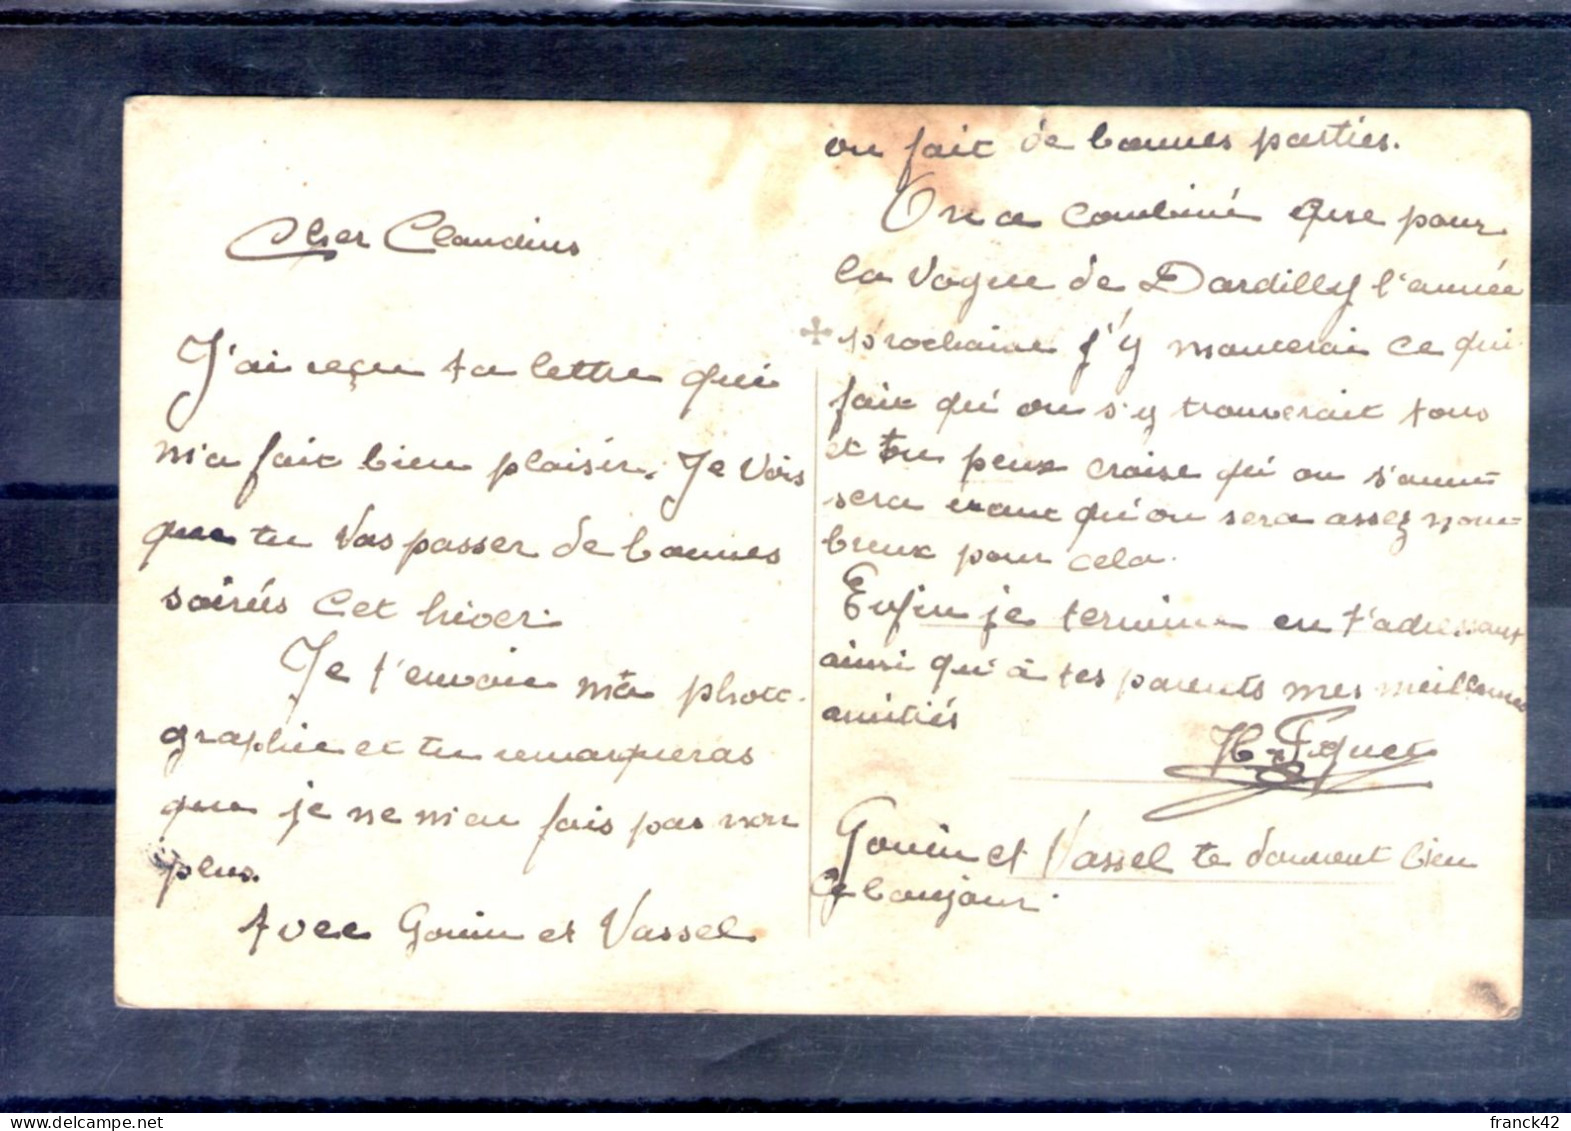 Cher Claudius
J'ai reçu ta lettre qui
m'a fait bien plaisir. Je vois
que tu vas passer de bonnes
soirées cet hiver.
Je t'envoie ma photo-
graphie et tu remarqueras
que je ne m'en fais pas non
plus.
Avec Gonin et Vassel
on fait de bonnes parties.
On a combiné que pour
la vogue de Dardilly l'année
prochaine j'y monterai ce qui
fait qu'on s'y trouverait tous
et tu peux croire qu'on s'amu-
sera vu qu'on sera assez nom-
breux pour cela.
Enfin je termine en t'adressant
ainsi qu'à tes parents mes meilleures
amitiés
Gonin et Vassel te donnent bien
le bonjour.
www.delcampe.net
franck42